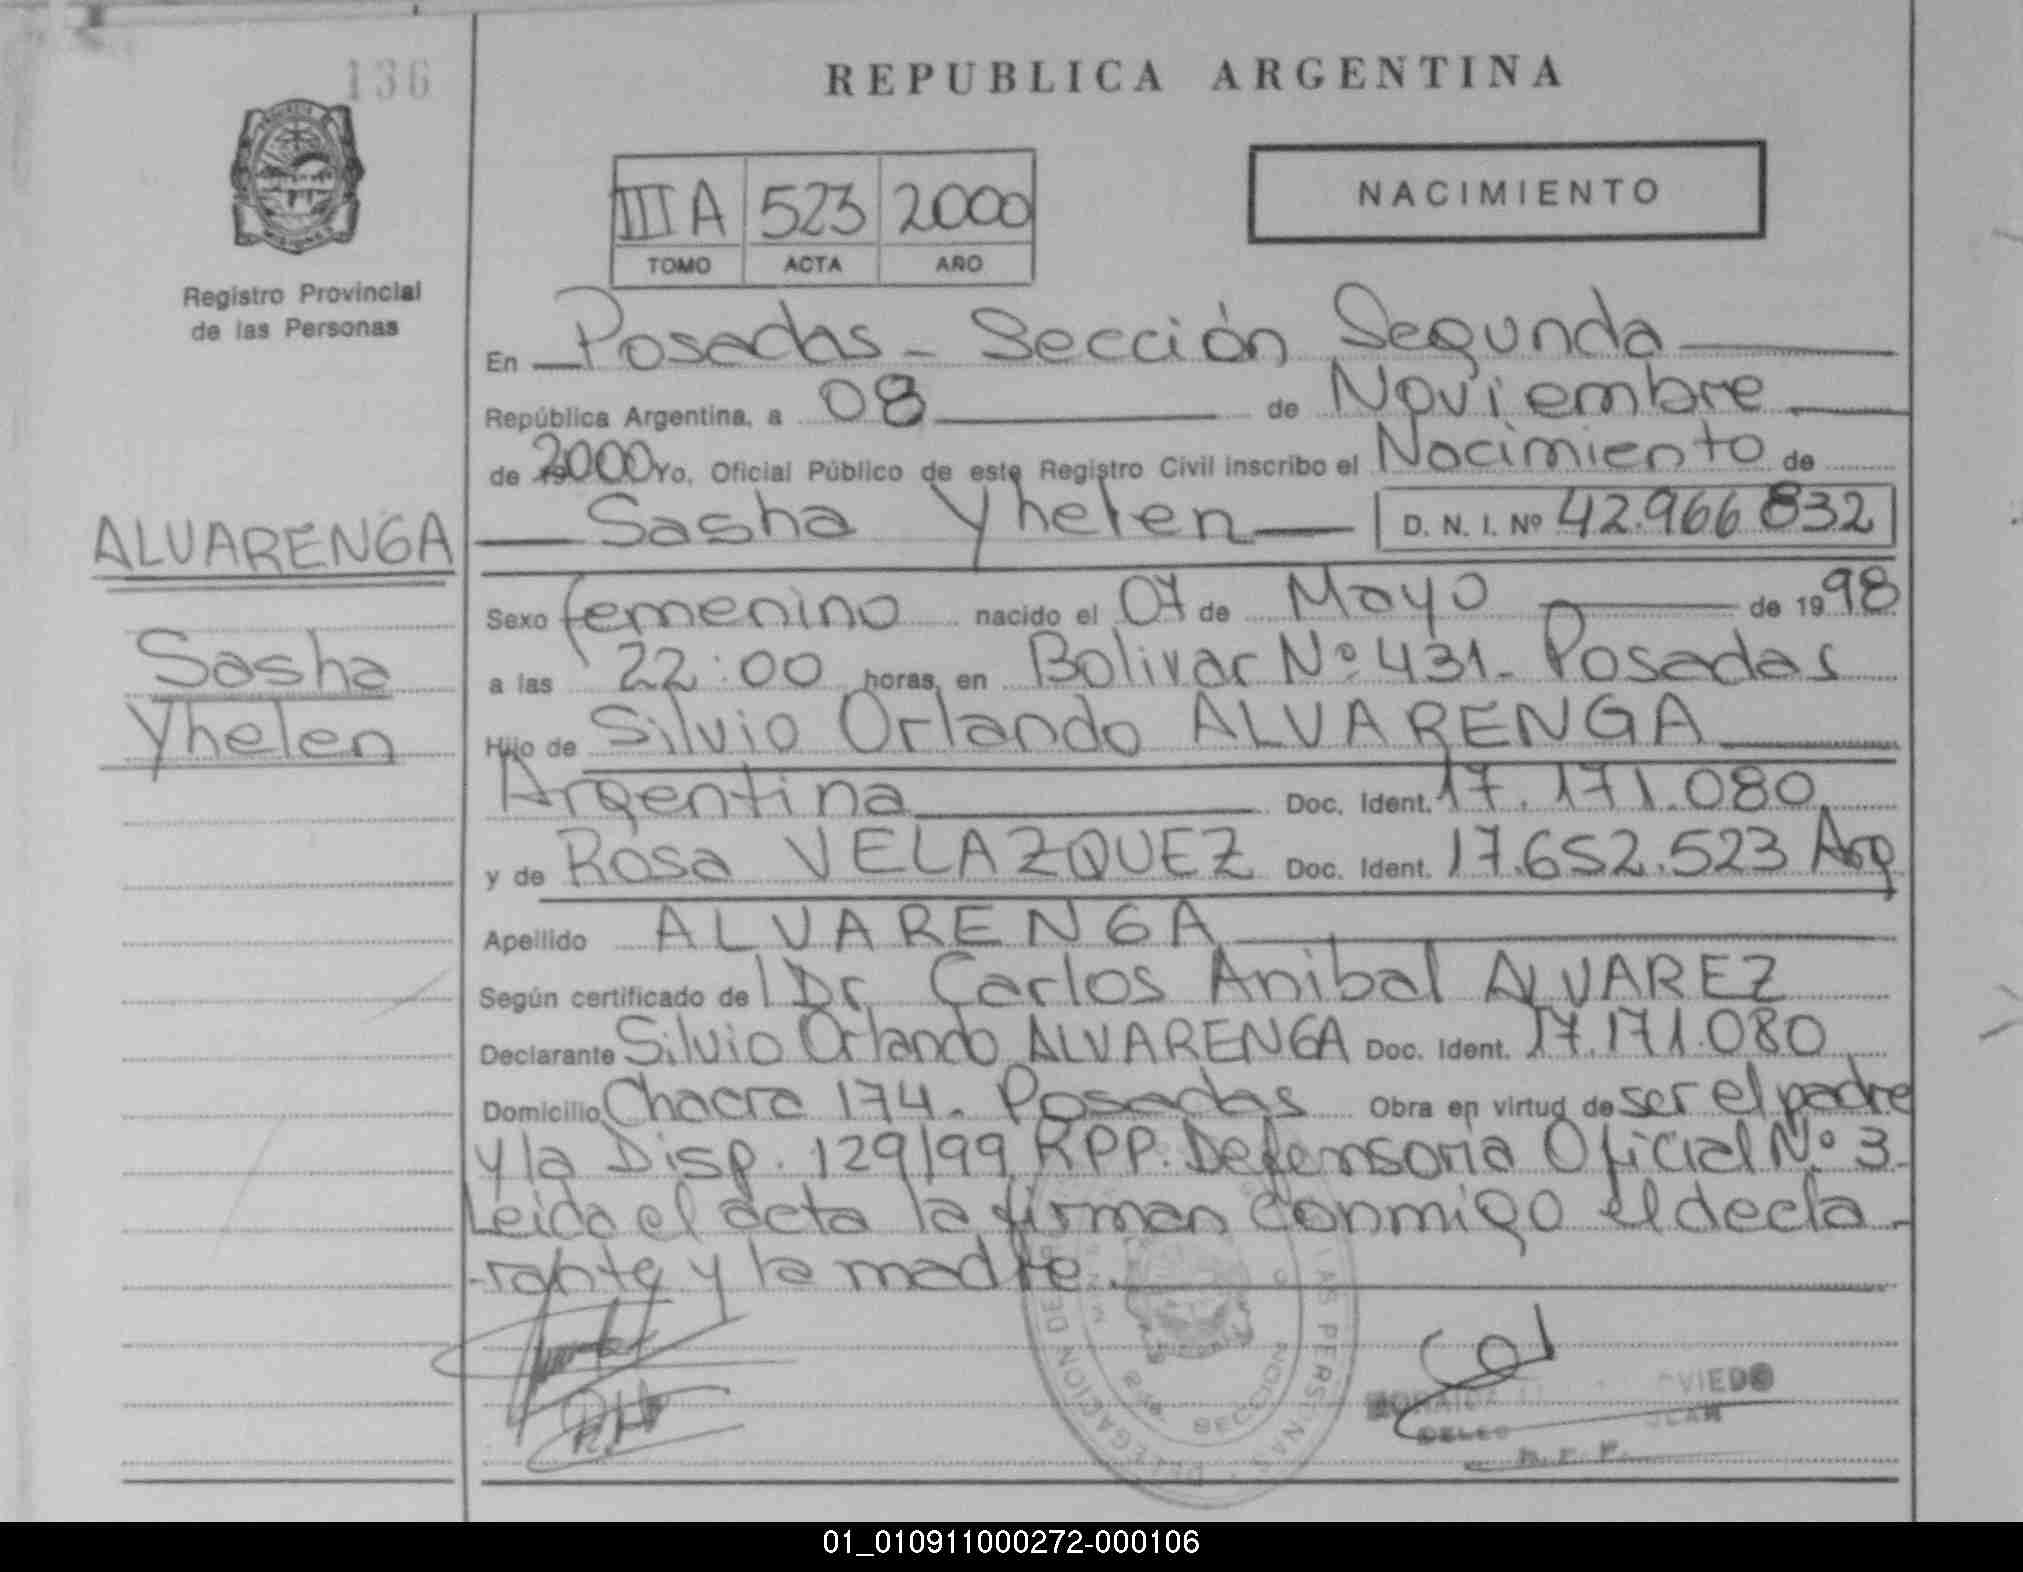 136
REPUBLICA ARGENTINA
IIIA 523 2000
TOMO ACTA AÑO
NACIMIENTO
Registro Provincial
de las Personas
En Posadas - Sección Segunda
República Argentina, a 08 de Noviembre
de 2000 Yo, Oficial Público de este Registro Civil inscribo el Nacimiento de
Sasha Yhelen D. N. I. Nº 42.966 832
ALVARENGA
Sasha
Yhelen
Sexo femenino nacido el 07 de Mayo de 1998
a las 22:00 horas, en Bolivar Nº 431- Posadas
Hijo de Silvio Orlando ALVARENGA
Argentina Doc. Ident. 17.171.080
y de Rosa VELAZQUEZ Doc. Ident. 17.652.523 Arg
Apellido ALVARENGA
Según certificado de l Dr Carlos Anibal ALVAREZ
Declarante Silvio Orlando ALVARENGA Doc. Ident. 17.171.080
Domicilio Chacra 174. Posadas Obra en virtud de ser el padre
y la Disp. 129/99 RPP. Defensoria Oficial Nº 3-
Leida el acta la firman conmigo el decla-
-rante y la madre.
DELEGACION DE LAS PERSONAS
2da. SECCION
OVIEDO
R. P. P.
01_010911000272-000106